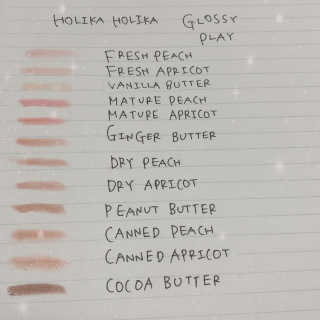 HOLIKA HOLIKA GLOSSY
PLAY
FRESH PEACH
FRESH APRICOT
VANILLA BUTTER
MATURE PEACH
MATURE APRICOT
GINGER BUTTER
DRY PEACH
DRY APRICOT
PEANUT BUTTER
CANNED PEACH
CANNED APRICOT
COCOA BUTTER